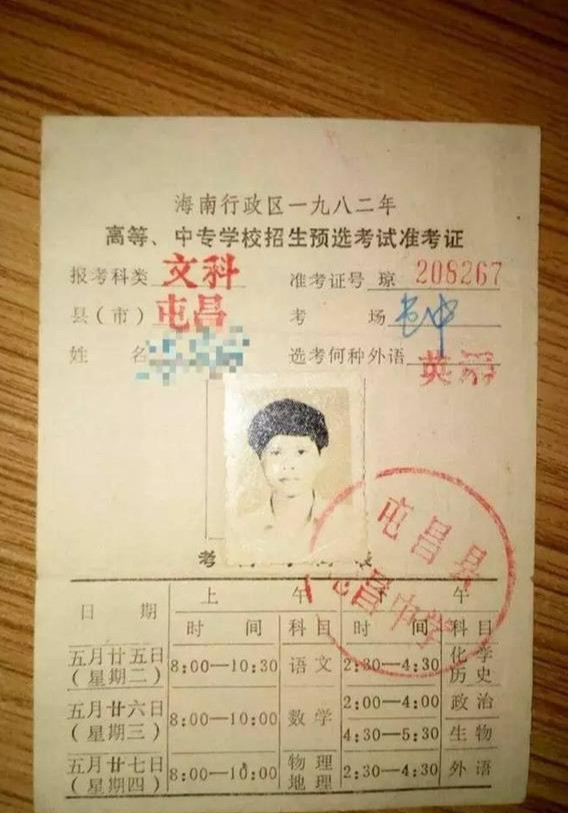 海南行政区一九八二年
高等、中专学校招生预选考试准考证
报考科类 文科 准考证号 琼 208267
县(市) 屯昌 考场 屯中
姓名 选考何种外语 英语
屯昌县
屯昌中学
考
日期 上午 午
时间 科目 时间 科目
五月廿五日(星期二) 8:00—10:30 语文 2:30—4:30 化学 历史
五月廿六日(星期三) 8:00—10:00 数学 2:00—4:00 政治
4:30—5:30 生物
五月廿七日(星期四) 8:00—10:00 物理 地理 2:30—4:30 外语